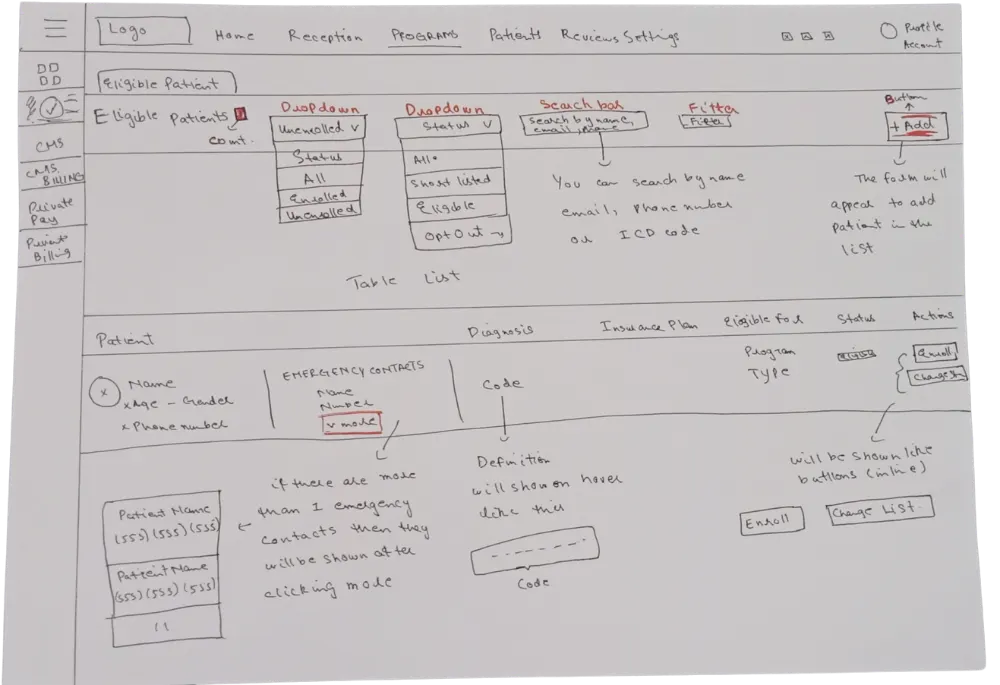 Logo
Home
Reception
PROGRAMS
Patients
Reviews
Settings
Profile
Account
Eligible Patient
Eligible Patients
Count.
Dropdown
Unenrolled v
Status
All
Enrolled
Unenrolled
Dropdown
Status v
All
Short listed
Eligible
Opt Out
Search bar
Search by name,
email, phone
Filter
Filter
Button
+ Add
CMS
CMS
BILLING
Private
Pay
Private
Billing
You can search by name
email, Phone number
or ICD code
The form will
appear to add
patient in the
list
Table List
Patient
Diagnosis
Insurance Plan
Eligible For
Status
Actions
x
Name
x Age - Gender
x Phone number
EMERGENCY CONTACTS
Name
Number
v more
Code
Program
Type
Enroll
Change
Definition
will show on hover
like this
Code
will be shown like
buttons (inline)
Enroll
Change List.
if there are more
than 1 emergency
contacts then they
will be shown after
clicking more
Patient Name
(555) (555) (555)
Patient Name
(555) (555) (555)
11